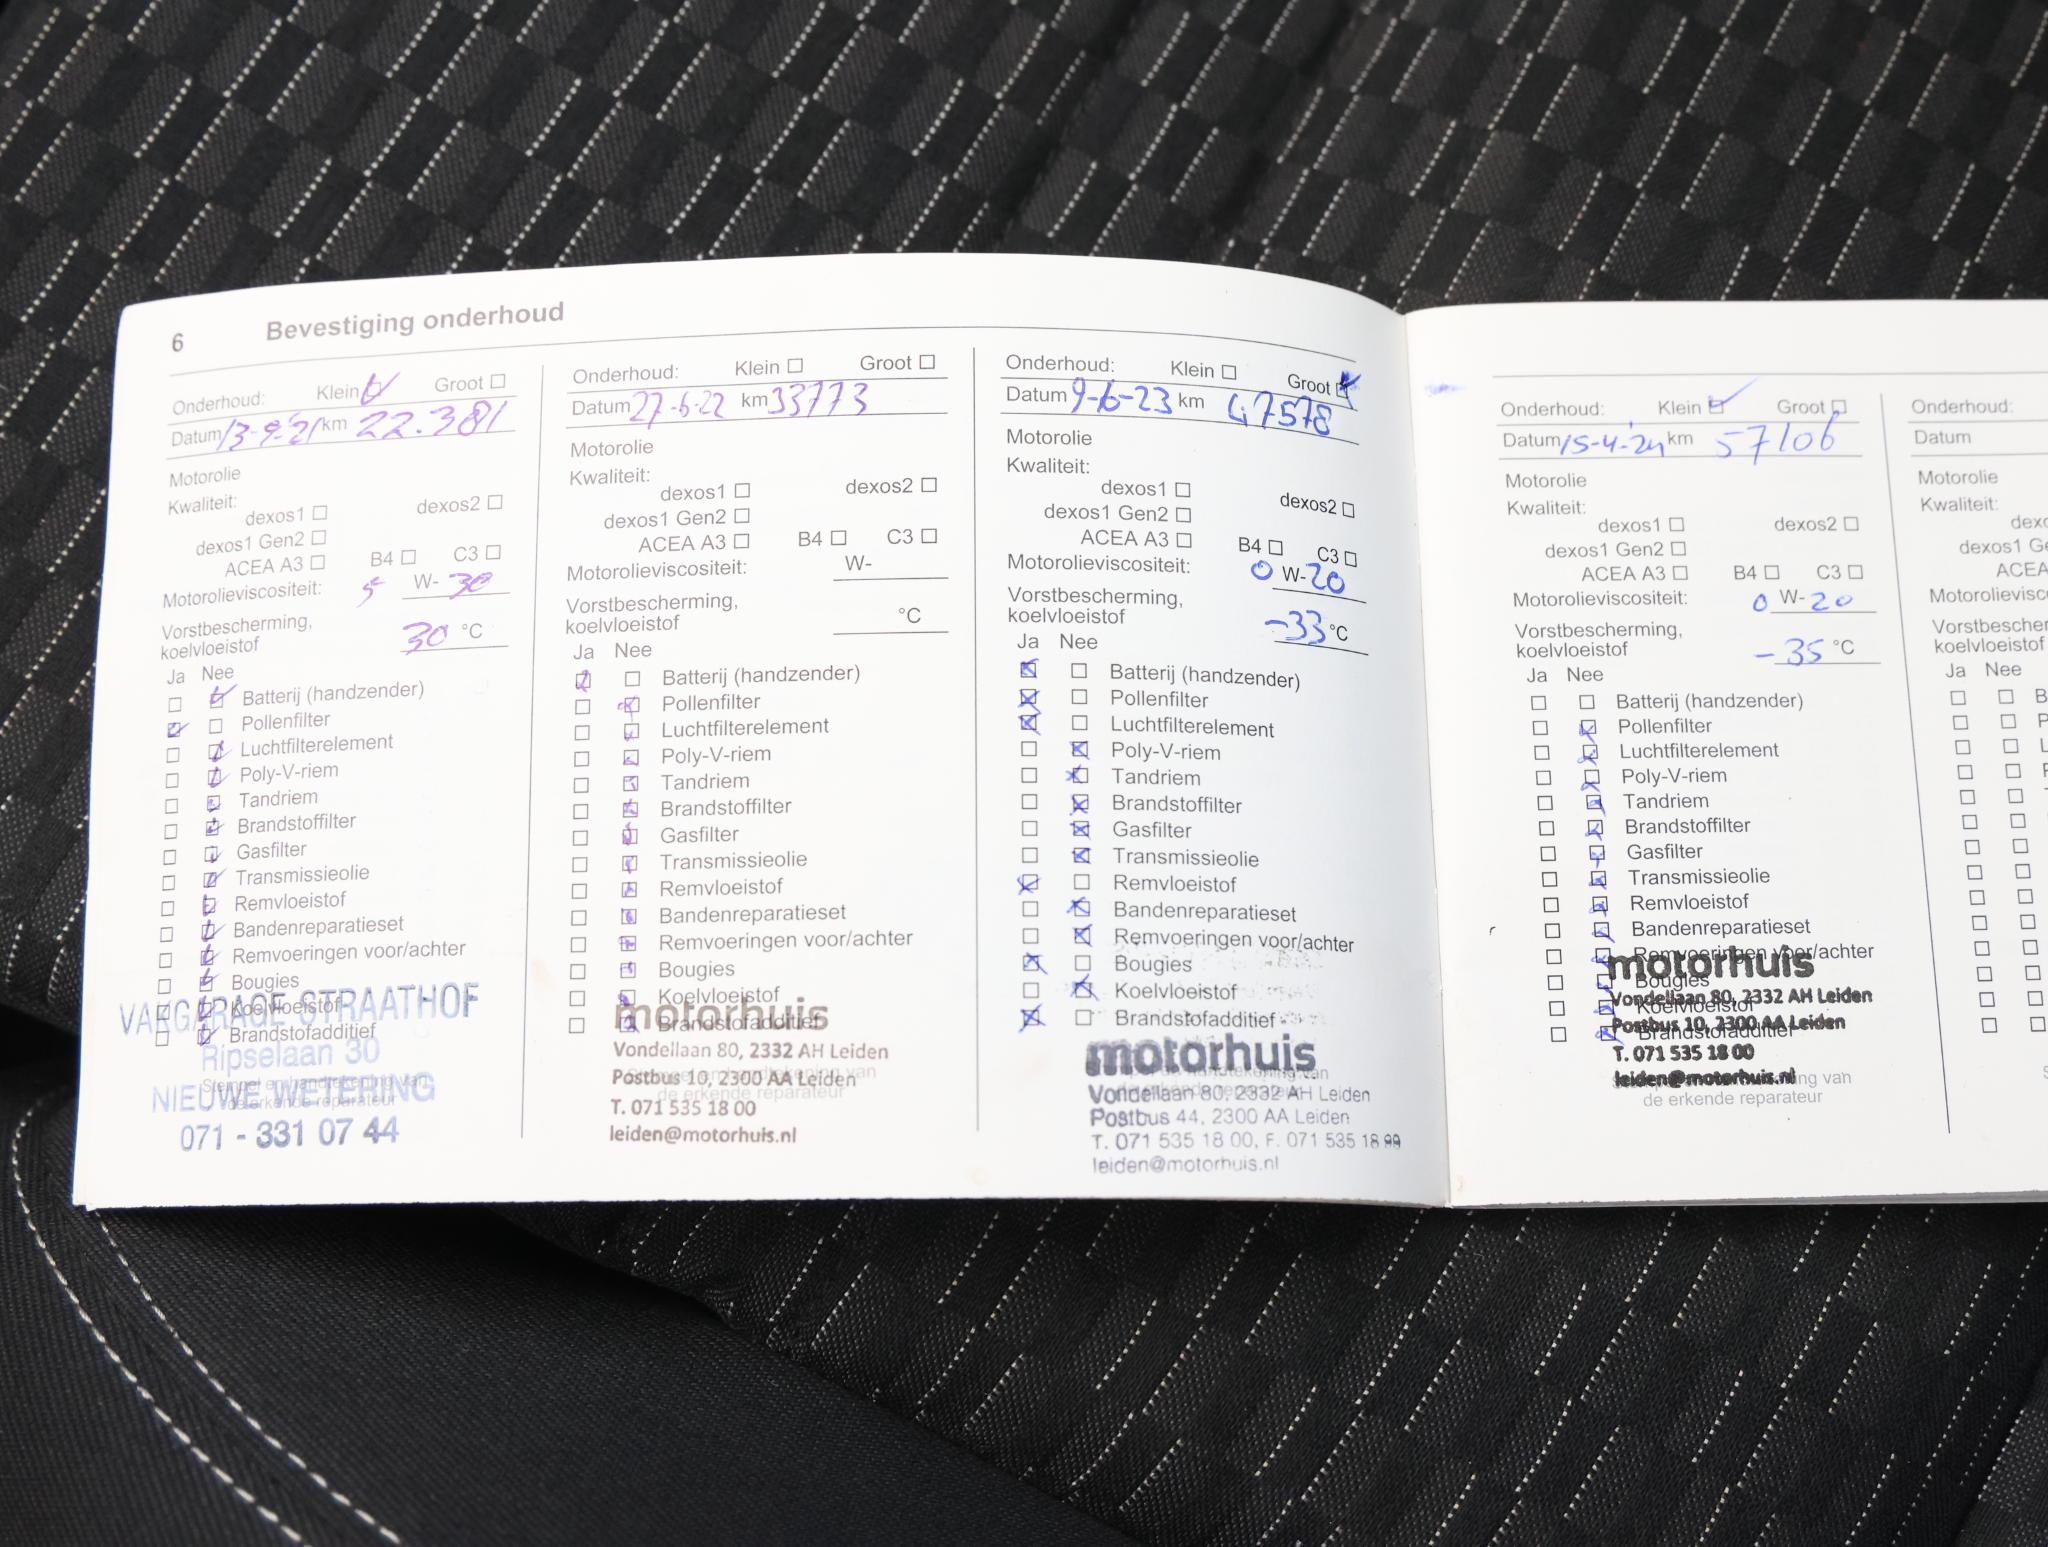 6 Bevestiging onderhoud
Onderhoud: Klein Groot
Datum 13-9-'21 km 22.381
Motorolie
Kwaliteit:
dexos1 dexos2
dexos1 Gen2
ACEA A3 B4 C3
Motorolieviscositeit: 5 W- 30
Vorstbescherming,
koelvloeistof 30 °C
Ja Nee
Batterij (handzender)
Pollenfilter
Luchtfilterelement
Poly-V-riem
Tandriem
Brandstoffilter
Gasfilter
Transmissieolie
Remvloeistof
Bandenreparatieset
Remvoeringen voor/achter
Bougies
Koelvloeistof
Brandstofadditief
VAKGARAGE STRAATHOF
Ripselaan 30
Stempel en handtekening van
NIEUWE WETERING
de erkende reparateur
071 - 331 07 44
Onderhoud: Klein Groot
Datum 27-6-22 km 33773
Motorolie
Kwaliteit:
dexos1 dexos2
dexos1 Gen2
ACEA A3 B4 C3
Motorolieviscositeit: W-
Vorstbescherming,
koelvloeistof °C
Ja Nee
Batterij (handzender)
Pollenfilter
Luchtfilterelement
Poly-V-riem
Tandriem
Brandstoffilter
Gasfilter
Transmissieolie
Remvloeistof
Bandenreparatieset
Remvoeringen voor/achter
Bougies
Koelvloeistof
motorhuis
Brandstofadditief
Vondellaan 80, 2332 AH Leiden
Stempel en handtekening van
Postbus 10, 2300 AA Leiden
de erkende reparateur
T. 071 535 18 00
leiden@motorhuis.nl
Onderhoud: Klein Groot
Datum 9-6-23 km 47578
Motorolie
Kwaliteit:
dexos1 dexos2
dexos1 Gen2
ACEA A3 B4 C3
Motorolieviscositeit: 0 W-20
Vorstbescherming,
koelvloeistof -33 °C
Ja Nee
Batterij (handzender)
Pollenfilter
Luchtfilterelement
Poly-V-riem
Tandriem
Brandstoffilter
Gasfilter
Transmissieolie
Remvloeistof
Bandenreparatieset
Remvoeringen voor/achter
Bougies
Koelvloeistof
Brandstofadditief
motorhuis
handtekening van
Vondellaan 80, 2332 AH Leiden
de erkende reparateur
Postbus 44, 2300 AA Leiden
T. 071 535 18 00, F. 071 535 18 99
leiden@motorhuis.nl
Onderhoud: Klein Groot
Datum 15-4-'24 km 57106
Motorolie
Kwaliteit:
dexos1 dexos2
dexos1 Gen2
ACEA A3 B4 C3
Motorolieviscositeit: 0 W- 20
Vorstbescherming,
koelvloeistof -35 °C
Ja Nee
Batterij (handzender)
Pollenfilter
Luchtfilterelement
Poly-V-riem
Tandriem
Brandstoffilter
Gasfilter
Transmissieolie
Remvloeistof
Bandenreparatieset
Remvoeringen voor/achter
motorhuis
Bougies
Vondellaan 80, 2332 AH Leiden
Koelvloeistof
Postbus 10, 2300 AA Leiden
Brandstofadditief
T. 071 535 18 00
leiden@motorhuis.nl
van
de erkende reparateur
Onderhoud:
Datum
Motorolie
Kwaliteit:
Ja Nee